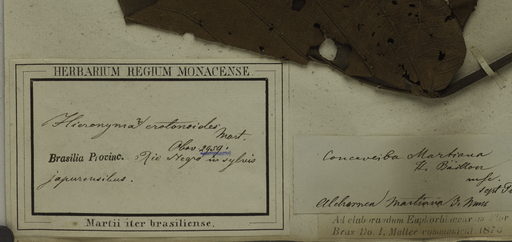 HERBARIUM REGIUM MONACENSE
Hieronyma crotonoides Mart.
Obs. 2959.
Brasilia Provinc. Rio Negro in sylvis
japurensibus.
Martii iter brasiliense.
Conceveiba Martiana
H. Baillon
msc.
Sept
Alchornea Martiana J. Müll
Ad elaborandum Euphorbiaceas in Flor
Bras Do. I. Müller communicat 187